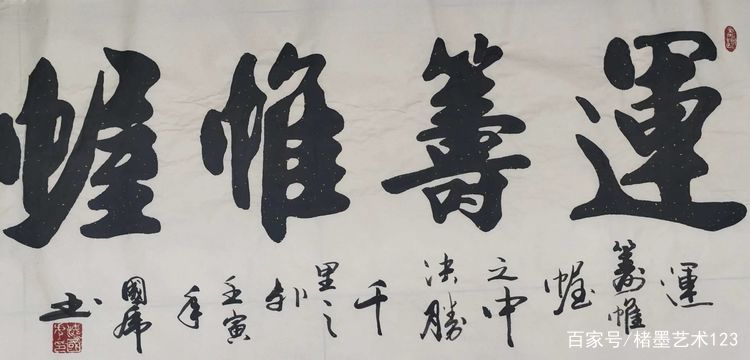 運籌帷幄
運
籌帷
幄
之中
決勝
千
里之
外
壬寅
年
國
书
百家号/楮墨艺术123